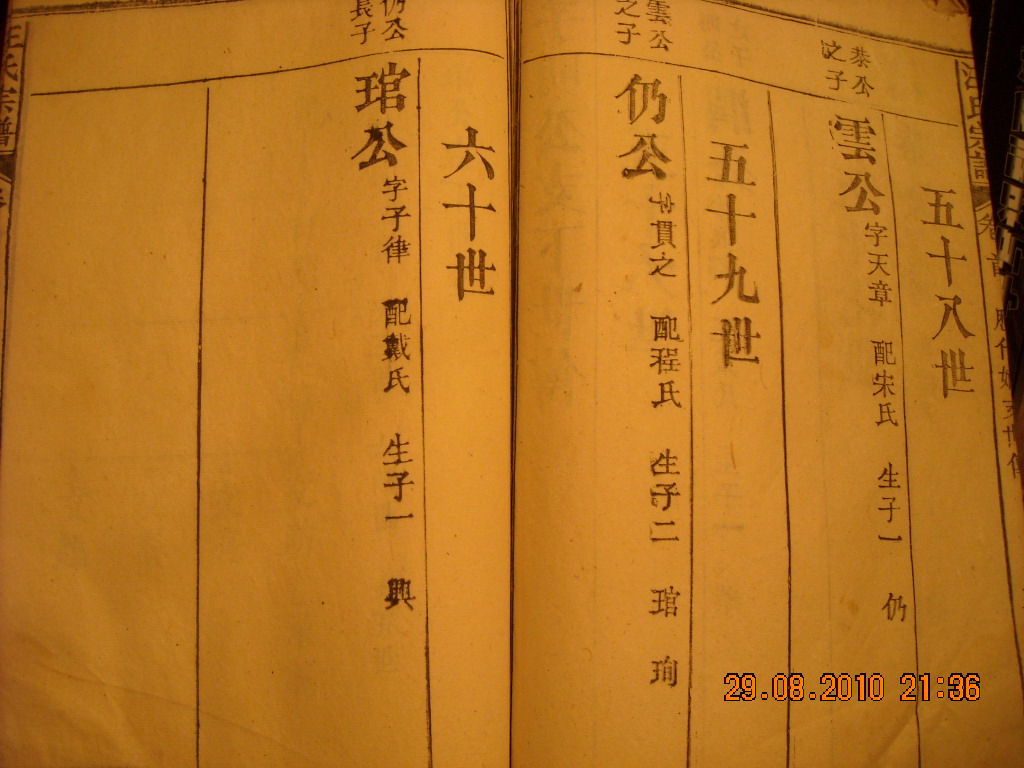 汪氏宗譜
卷首
歷代
五十八世
泰公之子
雲公 字天章 配宋氏 生子一 仍
五十九世
雲公之子
仍公 字貫之 配程氏 生子二 琯 珣
六十世
仍公長子
琯公 字子律 配戴氏 生子一 興
汪氏宗譜
29.08.2010 21:36